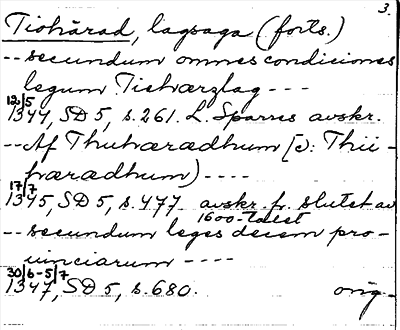 3.
Tiohärad, lagsaga (forts.)
-- secundum omnes condiciones
legum Tiehærzlag ---
12/5
1344, SD 5, s. 261. L. Sparres avskr.
-- Af Thuhæradhum [ɔ: Thii-
hæradhum) ----
17/7
1345, SD 5, s. 477 avskr. fr. slutet av
1600-talet
-- secundum leges decem pro-
uinciarum ----
30/6-5/7
1347, SD 5, s. 680. orig.